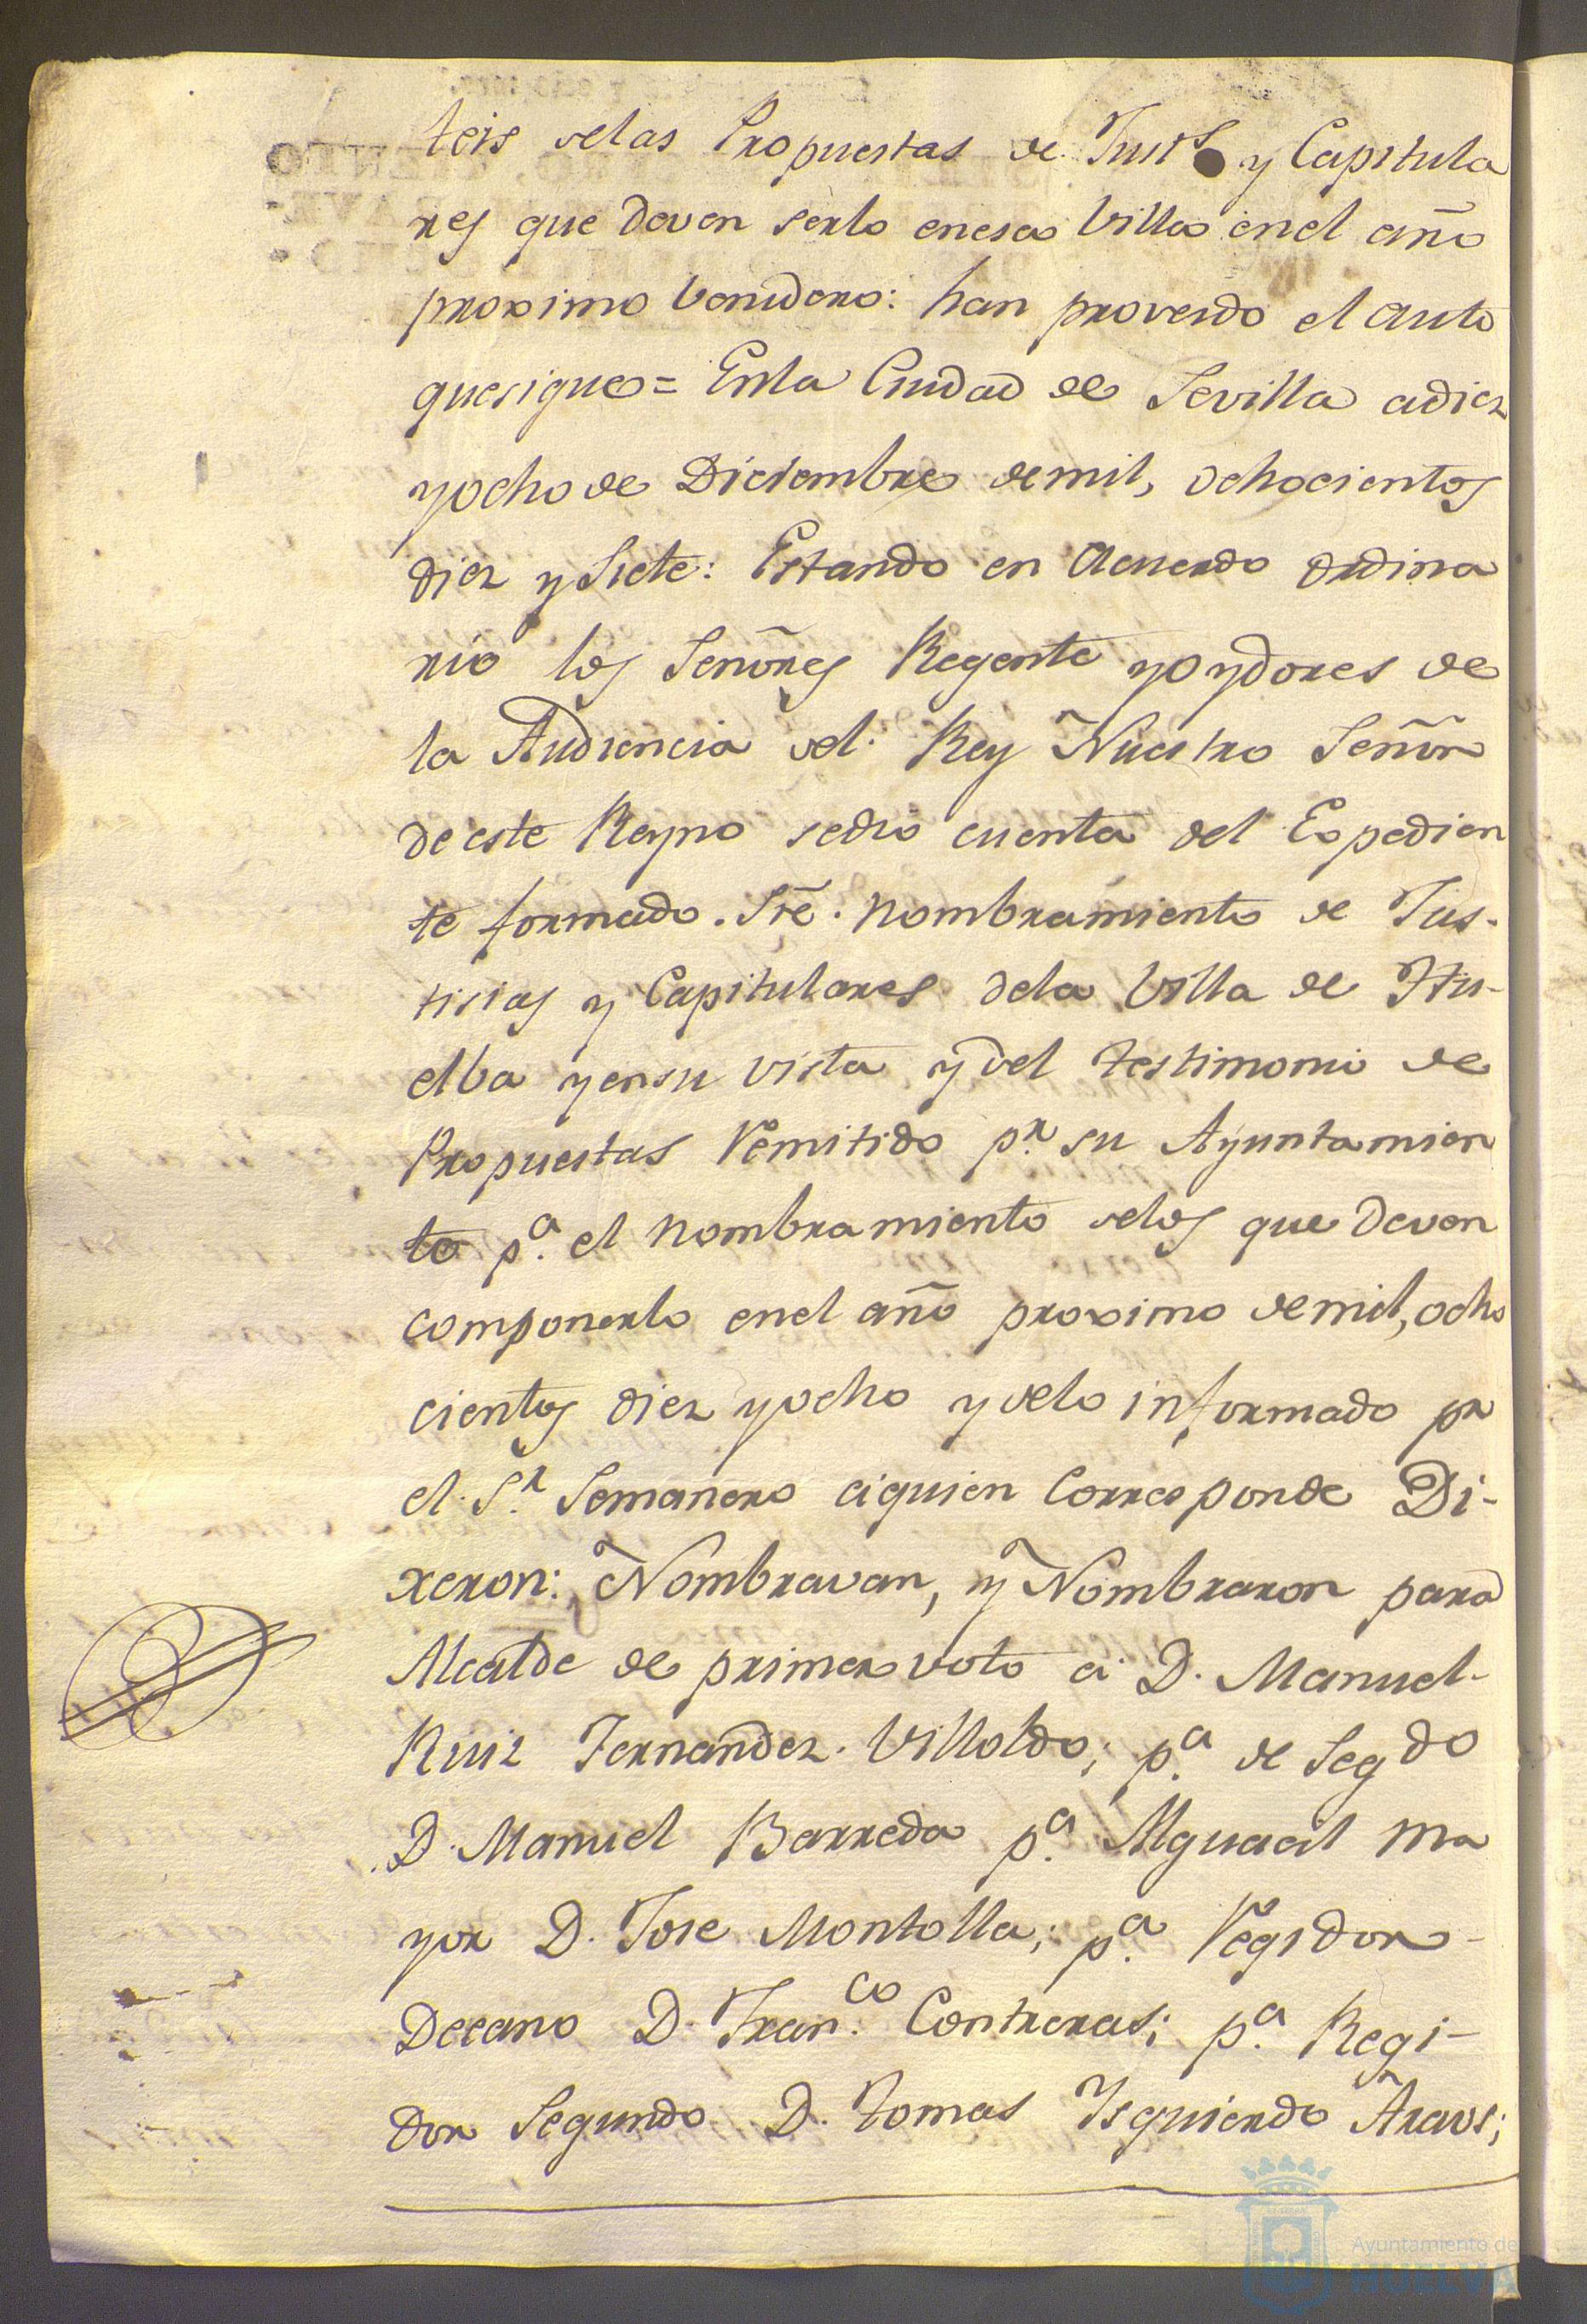 teis delas Propuestas de Justs y Capitula
res que deven serlo enesa Villa enel año
proximo benidero: han proveido el auto
quesigue= Enla Ciudad de Sevilla adiez
yocho de Diciembre demil, ochocientos
diez y siete: Estando en Acuerdo ordina
rio los Señores Regente yoydores de
la Audiencia del Rey Nuestro Señor
de este Reyno sedio cuenta del Expedien
te formado. Sre. nombramiento de Jus-
ticias y Capitulares dela Villa de Hu-
elba yensu vista y del testimonio de
Propuestas Remitido pr. su Ayuntamien
to pa. el nombramiento delos que deven
componerlo enel año proximo demil, ocho
cientos diez yocho y delo informado pr
el Sr. Semanero aquien Corresponde Di-
xeron: Nombravan, y Nombraron para
Alcalde de primer voto a D. Manuel
Ruiz Fernandez Villoldo; pa. de Segdo
D. Manuel Barreda pa. Alguacil ma
yor D. Jose Montolla; pa. Regidor
Decano D. Fran.co Contreras; pa. Regi-
dor Segundo D. Tomas Ysquierdo
Ayuntamiento de
HUELVA